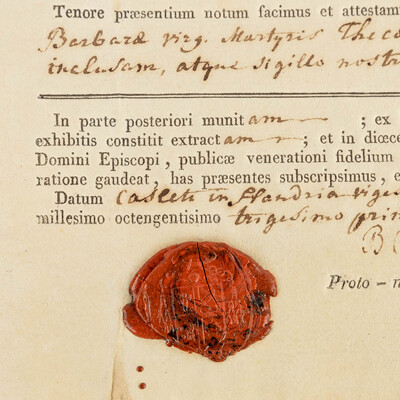 Tenore præsentium notum facimus et attestam
Barbaræ virg. Martyris Theco
inclusam, atque sigillo nostr
In parte posteriori munitam ; ex
exhibitis constitit extractam ; et in diœce
Domini Episcopi, publicæ venerationi fidelium
ratione gaudeat, has præsentes subscripsimus, e
Datum Casleti in flandria vige
millesimo octengentisimo trigesimo prim
B
Proto - n